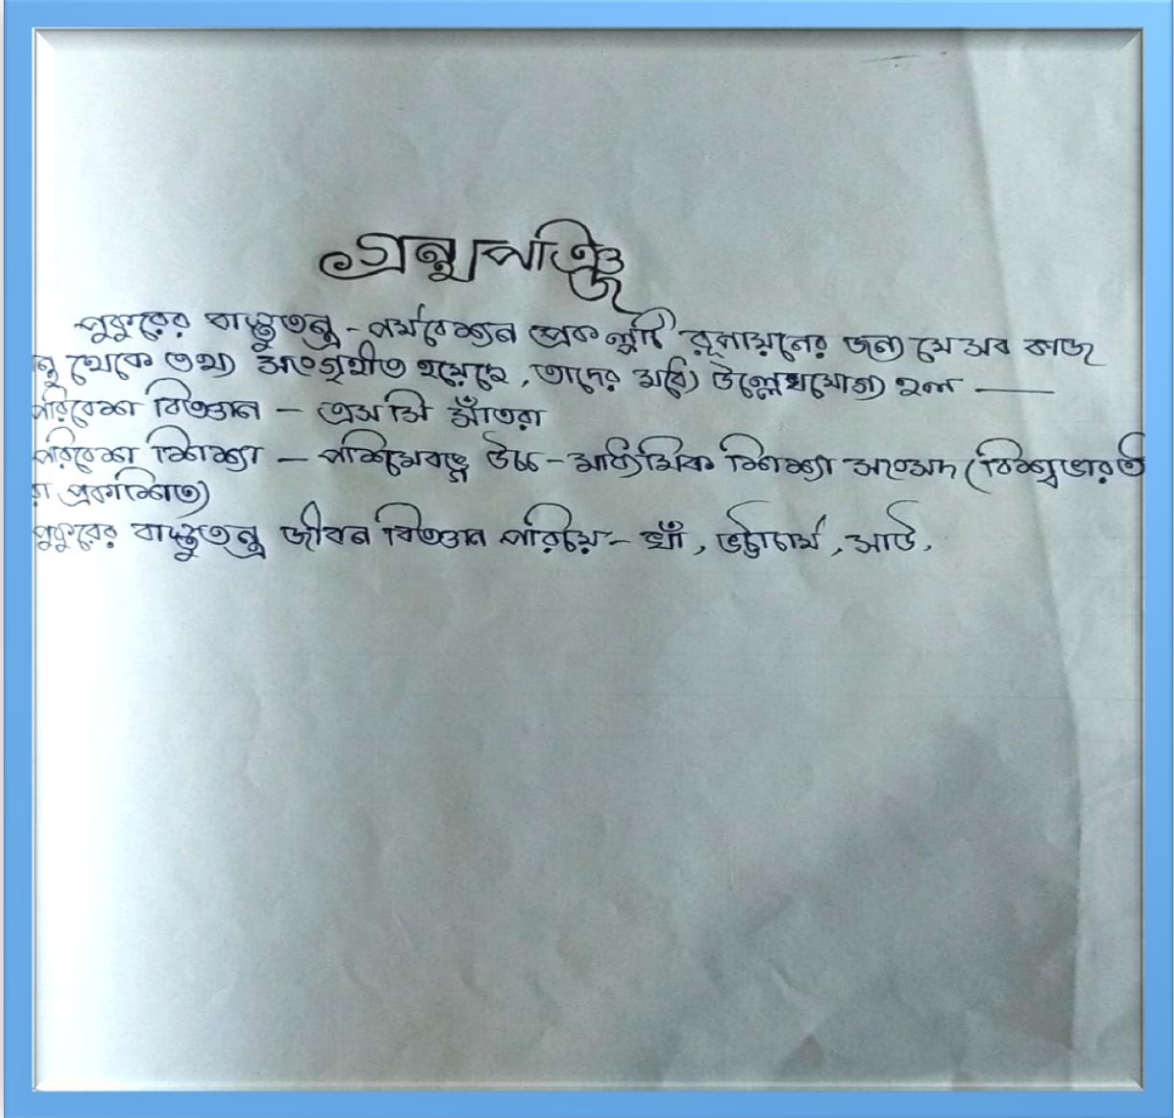 গ্রন্থপঞ্জি
পুকুরের বাস্তুতন্ত্র - পর্যবেক্ষন প্রকল্পটি রূপায়নের জন্য যে সব
থেকে তথ্য সংগৃহীত হয়েছে, তাদের মধ্যে উল্লেখযোগ্য হল —
পরিবেশ বিজ্ঞান - এস সি সাঁতরা
পরিবেশ শিক্ষা - পশ্চিমবঙ্গ উচ্চ-মাধ্যমিক শিক্ষা সংসদ (বিশ্বভারতী
প্রকাশিত)
পুকুরের বাস্তুতন্ত্র জীবন বিজ্ঞান পরিচয় - খাঁ, ভট্টাচার্য,